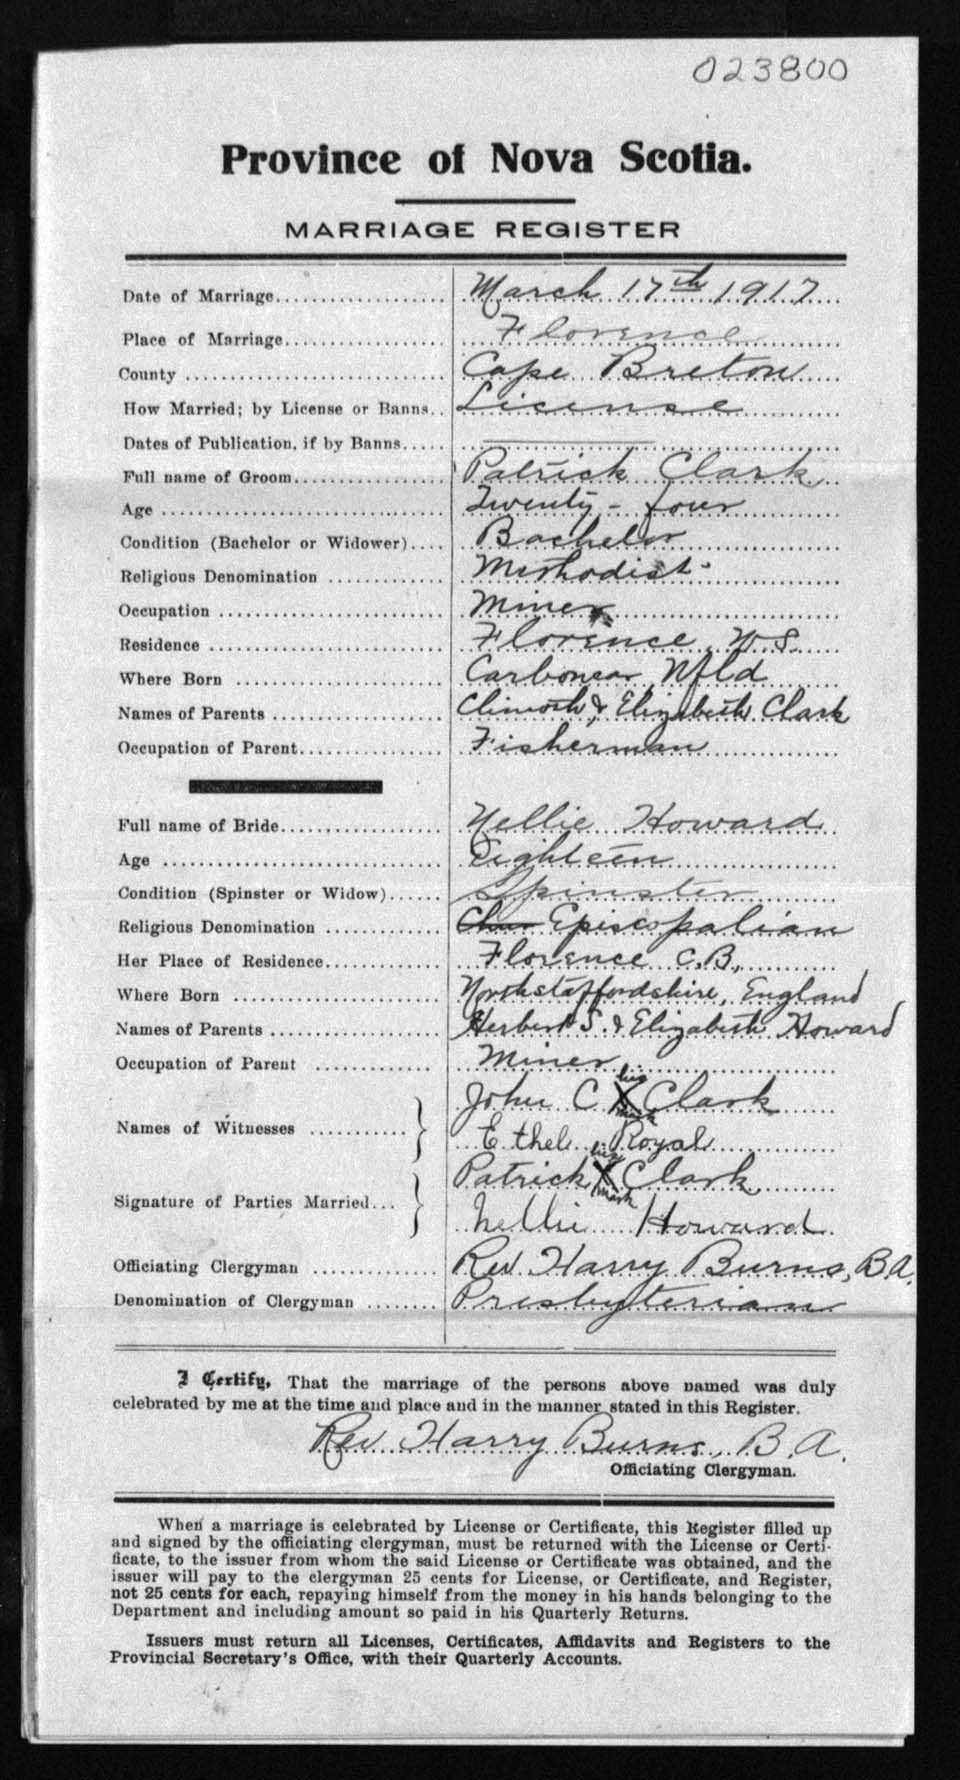 023800
Province of Nova Scotia.
MARRIAGE REGISTER
Date of Marriage.................... March 17th 1917
Place of Marriage................... Florence
County .............................. Cape Breton
How Married; by License or Banns.. License
Dates of Publication, if by Banns.....
Full name of Groom.................. Patrick Clark
Age ................................. Twenty-four
Condition (Bachelor or Widower).... Bachelor
Religious Denomination ............. Methodist
Occupation .......................... Miner
Residence ........................... Florence, N.S.
Where Born ........................ Carbonear, Nfld
Names of Parents .................... & Elizabeth Clark
Occupation of Parent................. Fisherman
Full name of Bride................... Nellie Howard
Age ................................. Eighteen
Condition (Spinster or Widow)...... Spinster
Religious Denomination ............. Episcopalian
Her Place of Residence............. Florence C.B.,
Where Born ........................ Northstaffordshire, England
Names of Parents .................... Herbert S. & Elizabeth Howard
Occupation of Parent .............. Miner
Names of Witnesses ........... } John C his X mark Clark
Ethel Royal
Signature of Parties Married... } Patrick his X mark Clark
Nellie Howard
Officiating Clergyman .............. Rev. Harry Burns, B.A.
Denomination of Clergyman ........ Presbyterian
I Certify, That the marriage of the persons above named was duly
celebrated by me at the time and place and in the manner stated in this Register.
Rev Harry Burns, B.A.
Officiating Clergyman.
When a marriage is celebrated by License or Certificate, this Register filled up
and signed by the officiating clergyman, must be returned with the License or Certi-
ficate, to the issuer from whom the said License or Certificate was obtained, and the
issuer will pay to the clergyman 25 cents for License, or Certificate, and Register,
not 25 cents for each, repaying himself from the money in his hands belonging to the
Department and including amount so paid in his Quarterly Returns.
Issuers must return all Licenses, Certificates, Affidavits and Registers to the
Provincial Secretary's Office, with their Quarterly Accounts.